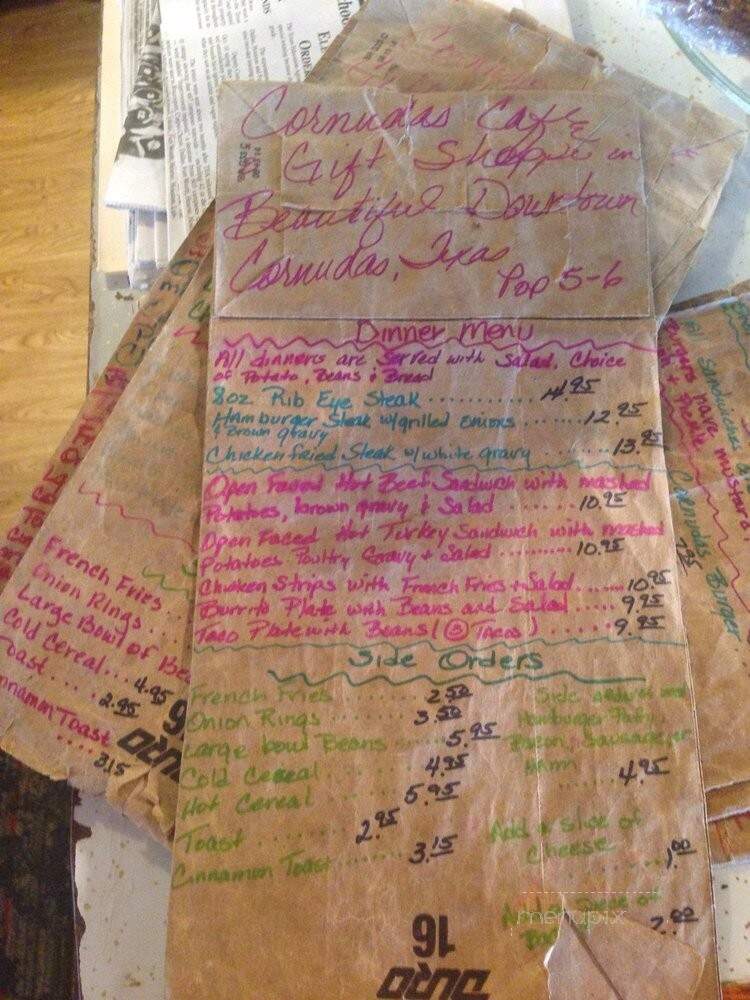 Cornudas Cafe
Gift Shoppe in
Beautiful Downtown
Cornudas, Texas
Pop 5-6
Dinner Menu
All dinners are Served with Salad, Choice
of Potato, Beans & Bread
8oz Rib Eye Steak .......... 14.95
Hamburger Steak w/grilled onions ...... 12.95
& Brown gravy
Chicken Fried Steak w/white gravy ..... 13.95
Open Faced Hot Beef Sandwich with mashed
Potatoes, brown gravy & Salad ....... 10.95
Open Faced Hot Turkey Sandwich with mashed
Potatoes Poultry Gravy + Salad .......... 10.95
Chicken Strips with French Fries + Salad..... 10.95
Burrito Plate with Beans and Salad ..... 9.95
Taco Plate with Beans (3 Tacos) ...... 9.95
Side Orders
French Fries ....... 2.50
Onion Rings ....... 3.50
Large bowl Beans ..... 5.95
Cold Cereal ....... 4.95
Hot Cereal ....... 5.95
Toast ......... 2.95
Cinnamon Toast ..... 3.15
Side
Hamburger Patty,
Bacon, Sausage, or
Hamm
....... 4.95
Add a slice of
Cheese
..... 1.00
Add a
2.00
menupix
DURO
16
French Fries
Onion Rings ...
Large Bowl of Be
Cold Cereal... 4.95
Toast .... 2.95
nnamon Toast
.... 3.15
DURO
All Sandwiches
Burgers have
Pickle mustard
Cornudas Burger
7.95
ORDE